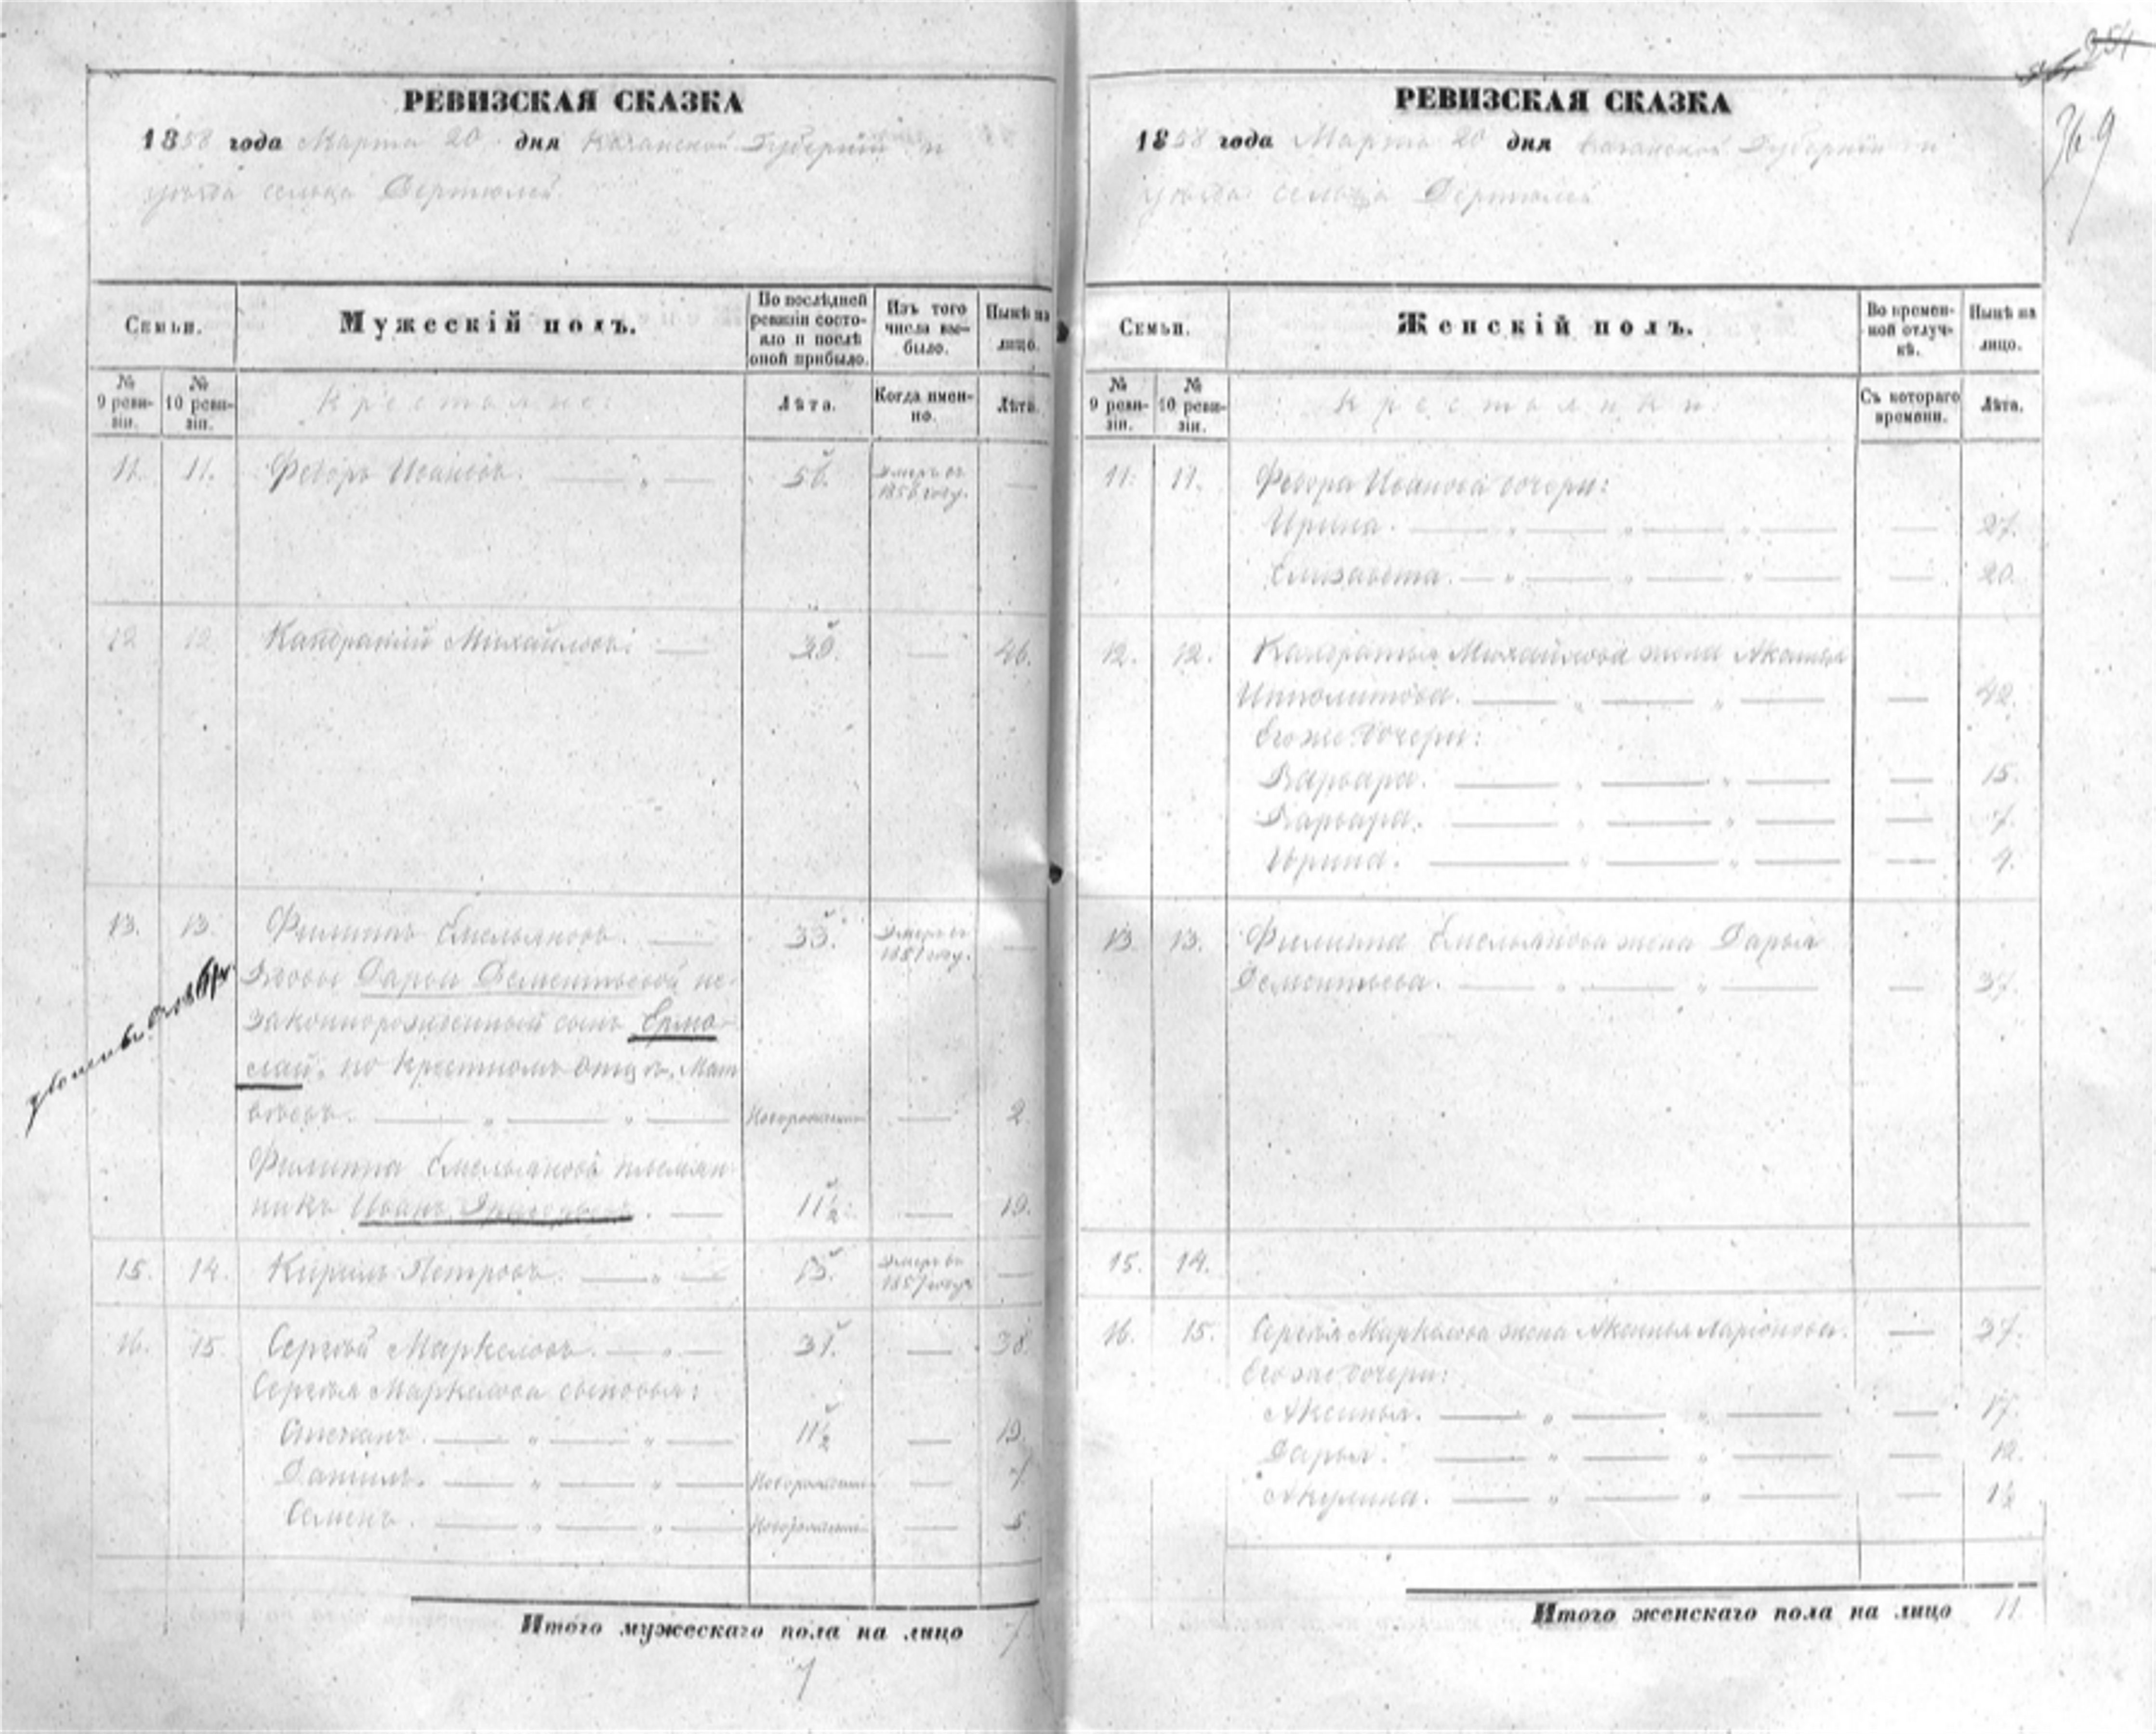 РЕВИЗСКАЯ СКАЗКА
1858 года Марта 20 дня Казанской Губернии и
уѣзда сельца Дертюлей
Семьи.
Мужескій полъ.
По послѣдней ревизіи состояло и послѣ оной прибыло.
Изъ того числа выбыло.
Нынѣ на лицо.
№ 9 ревизіи.
№ 10 ревизіи.
Крестьяне:
Лѣта.
Когда именно.
Лѣта.
11. 11. Федоръ Ивановъ. 56. Умеръ въ 1856 году. —
12 12 Кандратій Михайловъ: 39. — 46.
13. 13. Филиппъ Емельяновъ. 33. Умеръ въ 1851 году. —
Вдовы Дарьи Дементьевой не-
законнорожденный сынъ Ермо-
лай, по крестномъ отцѣ, Мат
вѣевъ. Новорожденный — 2
Филиппа Емельянова племян
никъ Иванъ 11½ — 19.
15. 14. Кирилъ Петровъ. 13. Умеръ въ 1857 году —
16. 15. Сергѣй Маркеловъ. 31. — 38.
Сергѣя Маркелова сыновья:
Степанъ. 11½ — 19.
Данилъ. Новорожденный — 7.
Семенъ. Новорожденный — 5
Итого мужескаго пола на лицо 7
7
354
369
РЕВИЗСКАЯ СКАЗКА
1858 года Марта 20 дня Казанской Губерніи и
уѣзда сельца Дертюлей
Семьи.
Женскій полъ.
Во временной отлучкѣ.
Нынѣ на лицо.
№ 9 ревизіи.
№ 10 ревизіи.
Крестьянки:
Съ котораго времени.
Лѣта.
11. 11. Федора Иванова дочери:
Ирина. — 27.
Елизавета. — 20.
12. 12. Кандратья Михайлова жена Аксинья
Ипполитова. — 42.
Его же дочери:
Варвара. — 15.
Варвара. — 7.
Ирина. — 4.
13 13. Филиппа Емельянова жена Дарья
Дементьева. — 37.
15. 14.
16. 15. Сергѣя Маркелова жена Аксинья Ларіонова. — 37.
Его же дочери:
Аксинья. — 17.
Дарья. — 12.
Акулина. — 1½
Итого женскаго пола на лицо 11